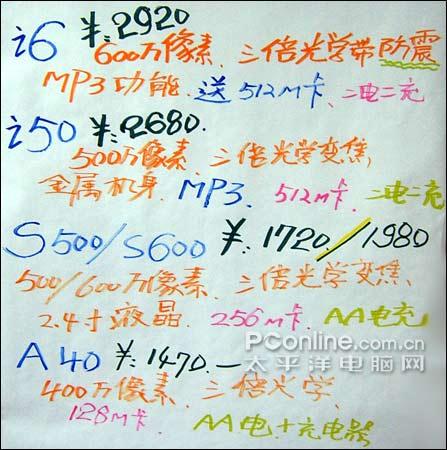 i6 ¥:2920
600万像素. 三倍光学带防震
MP3功能. 送512M卡. 二电二充
i50 ¥:2680.
500万像素. 三倍光学变焦
金属机身. MP3. 512M卡. 二电二充
S500/S600 ¥:1720./1980
500/600万像素. 三倍光学变焦
2.4寸液晶. 256M卡. AA电充
PConline.com.cn
太平洋电脑网
A40 ¥:1470.—
400万像素. 三倍光学.
128M卡. AA电+充电器